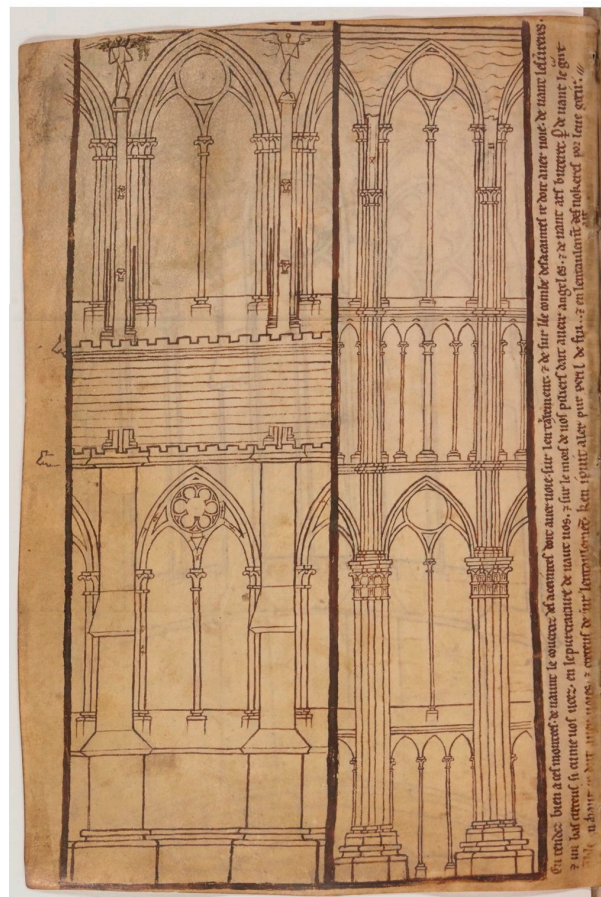 En tendez bien a ces montees. de uant le couertiz des acaintes doit auer uoie. sur len taulement. ⁊ de sur le comble des acaintes re doit auer uoie. de uant les uerires.
⁊ un bas creteus si cume uos ueez. en le purtraiture de uant uos. ⁊ sur le mors de uos pilers doit auoir angeles. ⁊ de uant ars buterez. ꝑ de uant le grant
haut re doit auer uoies. ⁊ creteus de sur lentaulement ken i puist aler pur peril de fu. ⁊ en lentaulement des nokeres por leue getir.